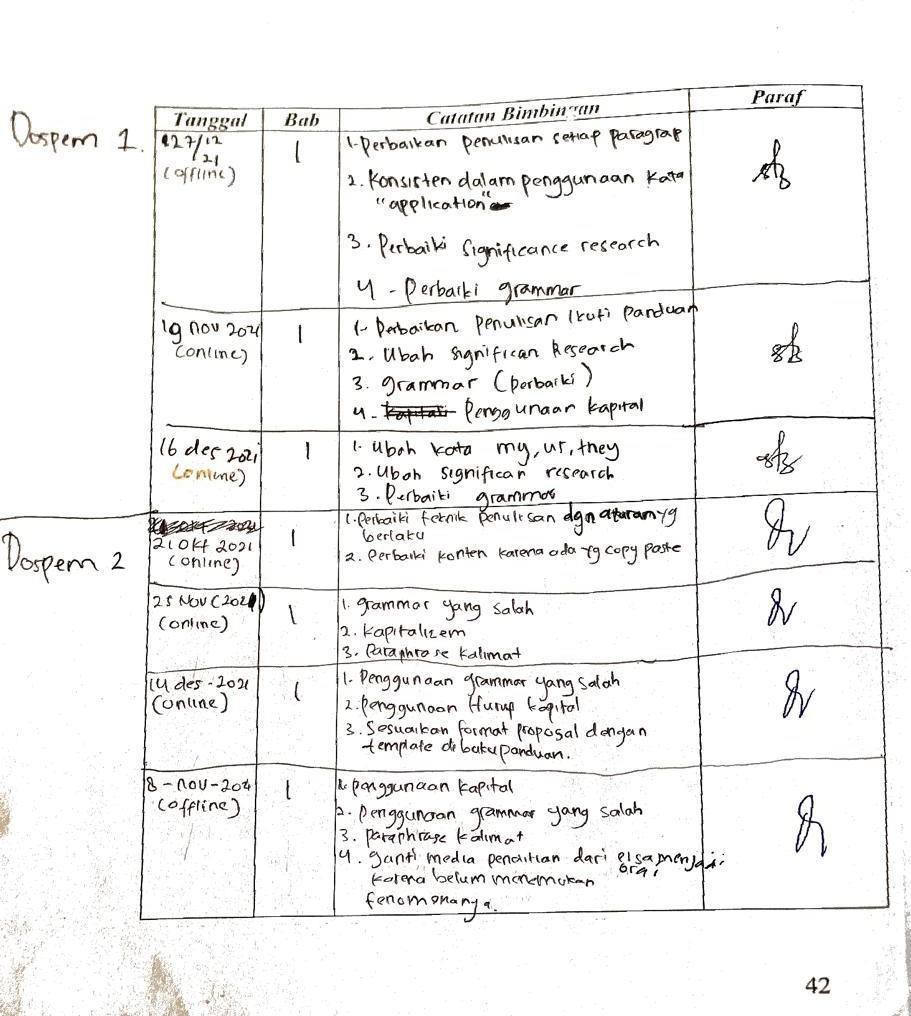 Dospem 1.
Tanggal Bab Catatan Bimbingan Paraf
27/12
21
(offline)
1
1. Perbaikan penulisan setiap paragrap
2. Konsisten dalam penggunaan kata
"application"
3. Perbaiki Significance research
4 - Perbaiki grammar
19 nov 2021
(online)
1
1- Perbaikan Penulisan Ikuti panduan
2. Ubah significan Research
3. grammar (perbaiki)
4. Penggunaan kapital
16 des 2021
(online)
1
1. Ubah kata my, ur, they
2. Ubah significan research
3. Perbaiki grammar
Dospem 2
21 Okt 2021
(online)
1
1. Perbaiki teknik penulisan dgn aturan yg
berlaku
2. Perbaiki konten karena ada yg copy paste
25 Nov (2021)
(online)
1
1. grammar yang salah
2. kapitalizem
3. Paraphrase kalimat
14 des - 2021
(online)
1
1. Penggunaan grammar yang salah
2. penggunaan Hurup kapital
3. Sesuaikan format proposal dengan
template di buku panduan.
8 - nov - 2021
(offline)
1
1. penggunaan kapital
2. Penggunaan grammar yang salah
3. paraphrase kalimat
4. ganti media penelitian dari elsa menjadi
orai
karena belum menemukan
fenomenanya.
42